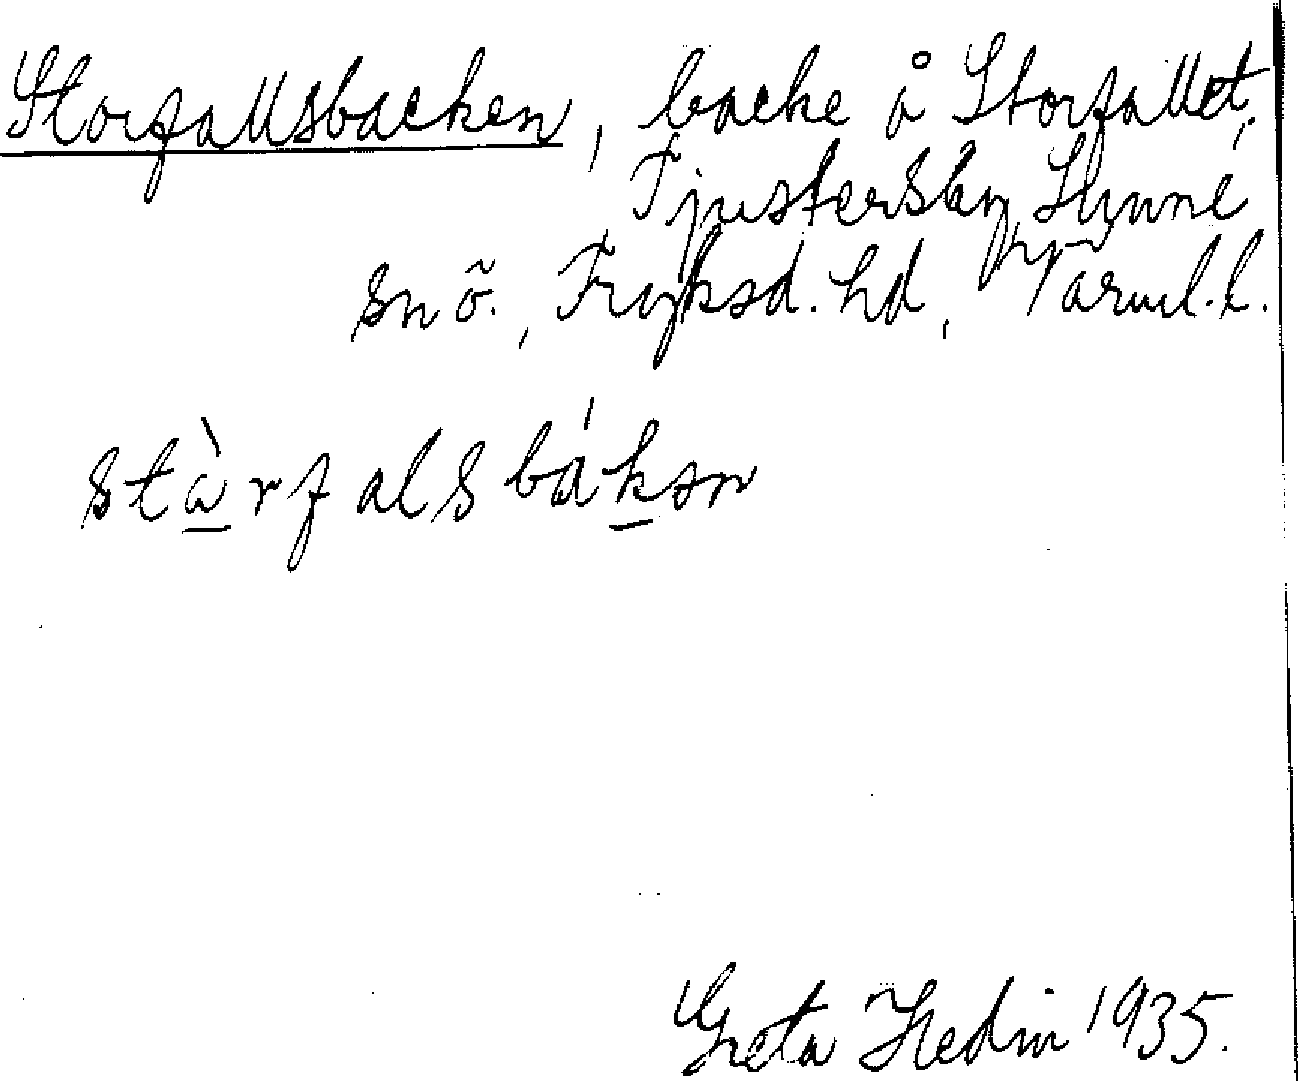 Storfallsbacken, backe å Storfallet,
Tjustersby, Sunne
sn ö., Fryksd. hd, Värml. l.
stàrfalsbákən
Greta Hedin 1935.